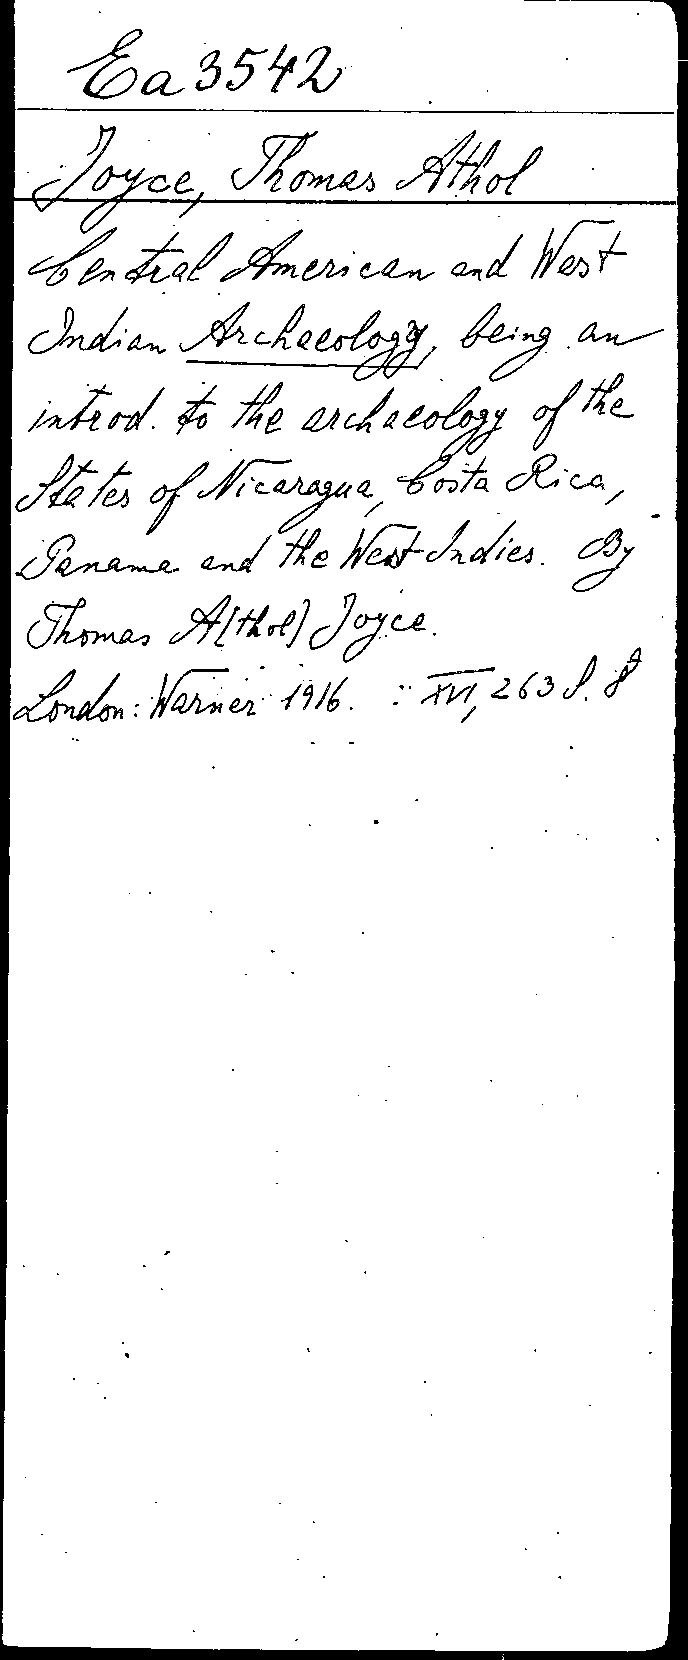 Ea 3542
Joyce, Thomas Athol
Central American and West
Indian Archaeology, being an
introd. to the archaeology of the
States of Nicaragua, Costa Rica,
Panama and the West Indies. By
Thomas A[thol] Joyce.
London: Warner 1916. XVI, 263 S. 8